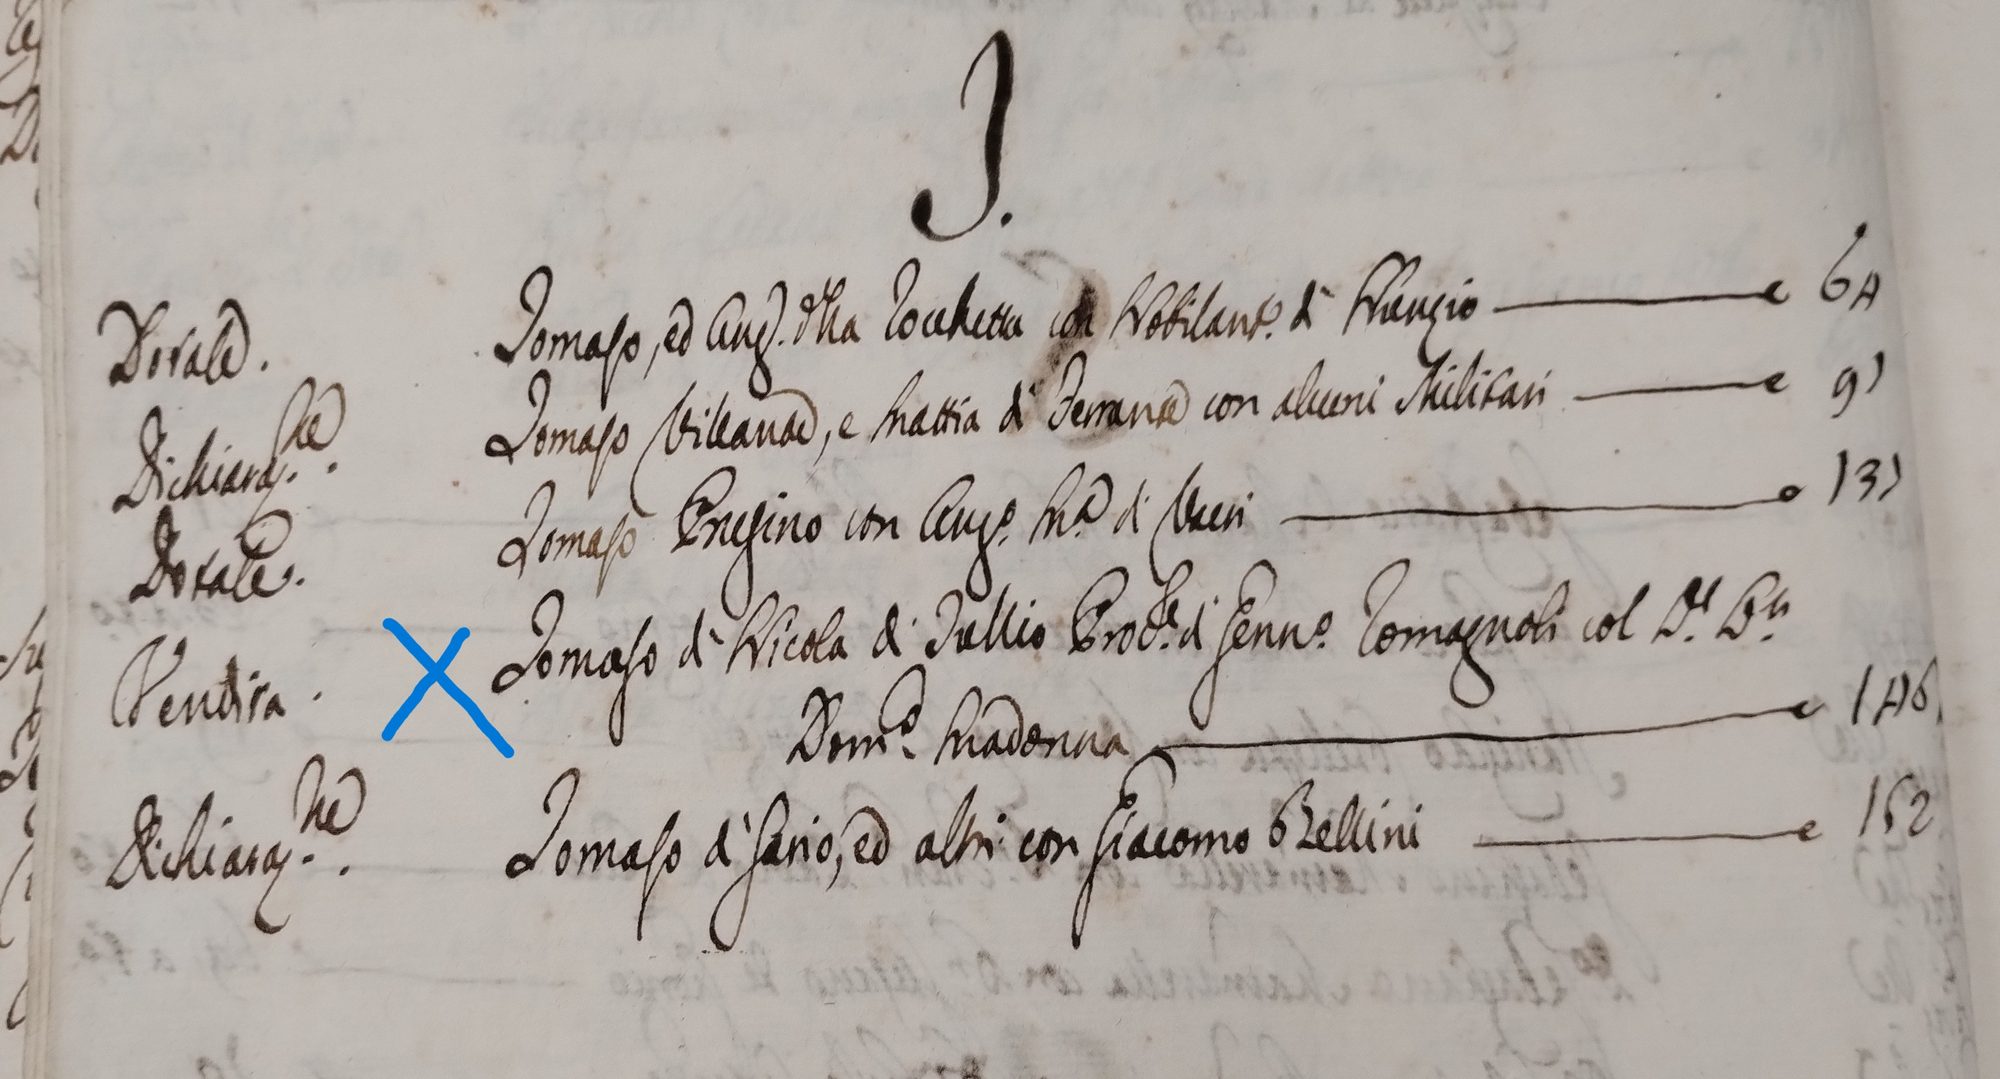 T.
Dotale. Tomaso, ed Ang. d'lla Rocchetta con Nobilant.e d' Nunzio 64
Dichiaraz.ne. Tomaso Villanae, e Mattia d' Ferrante con alcuni Militari 91
Dotale. Tomaso Pregino con Ang.a M.a di 131
Vendita. Tomaso d' Nicola d' Tullio Proc.re d' Genn.o Romagnoli col D.r D.n
Dom.co Madonna 146
Dichiaraz.ne. Tomaso d' Iario, ed altri con Giacomo Bellini 162